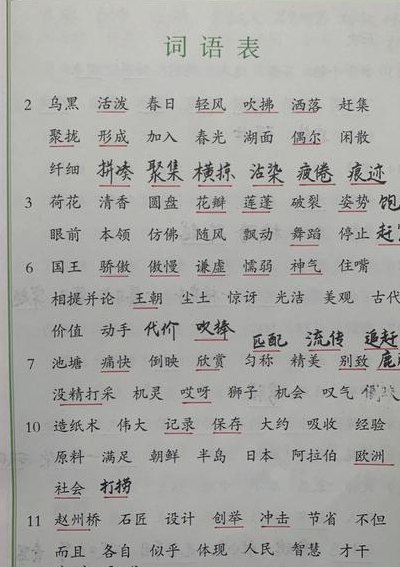 词语表
2 乌黑 活泼 春日 轻风 吹拂 洒落 赶集
聚拢 形成 加入 春光 湖面 偶尔 闲散
纤细 拼凑 聚集 横掠 沾染 疲倦 痕迹
3 荷花 清香 圆盘 花瓣 莲蓬 破裂 姿势 饱
眼前 本领 仿佛 随风 飘动 舞蹈 停止 赶
6 国王 骄傲 傲慢 谦虚 懦弱 神气 住嘴
相提并论 王朝 尘土 惊讶 光洁 美观 古代
价值 动手 代价 吹捧
匹配 流传 追赶
7 池塘 痛快 倒映 欣赏 匀称 精美 别致 鹿
没精打采 机灵 哎呀 狮子 机会 叹气
10 造纸术 伟大 记录 保存 大约 吸收 经验
原料 满足 朝鲜 半岛 日本 阿拉伯 欧洲
社会 打捞
11 赵州桥 石匠 设计 创举 冲击 节省 不但
而且 各自 似乎 体现 人民 智慧 才干